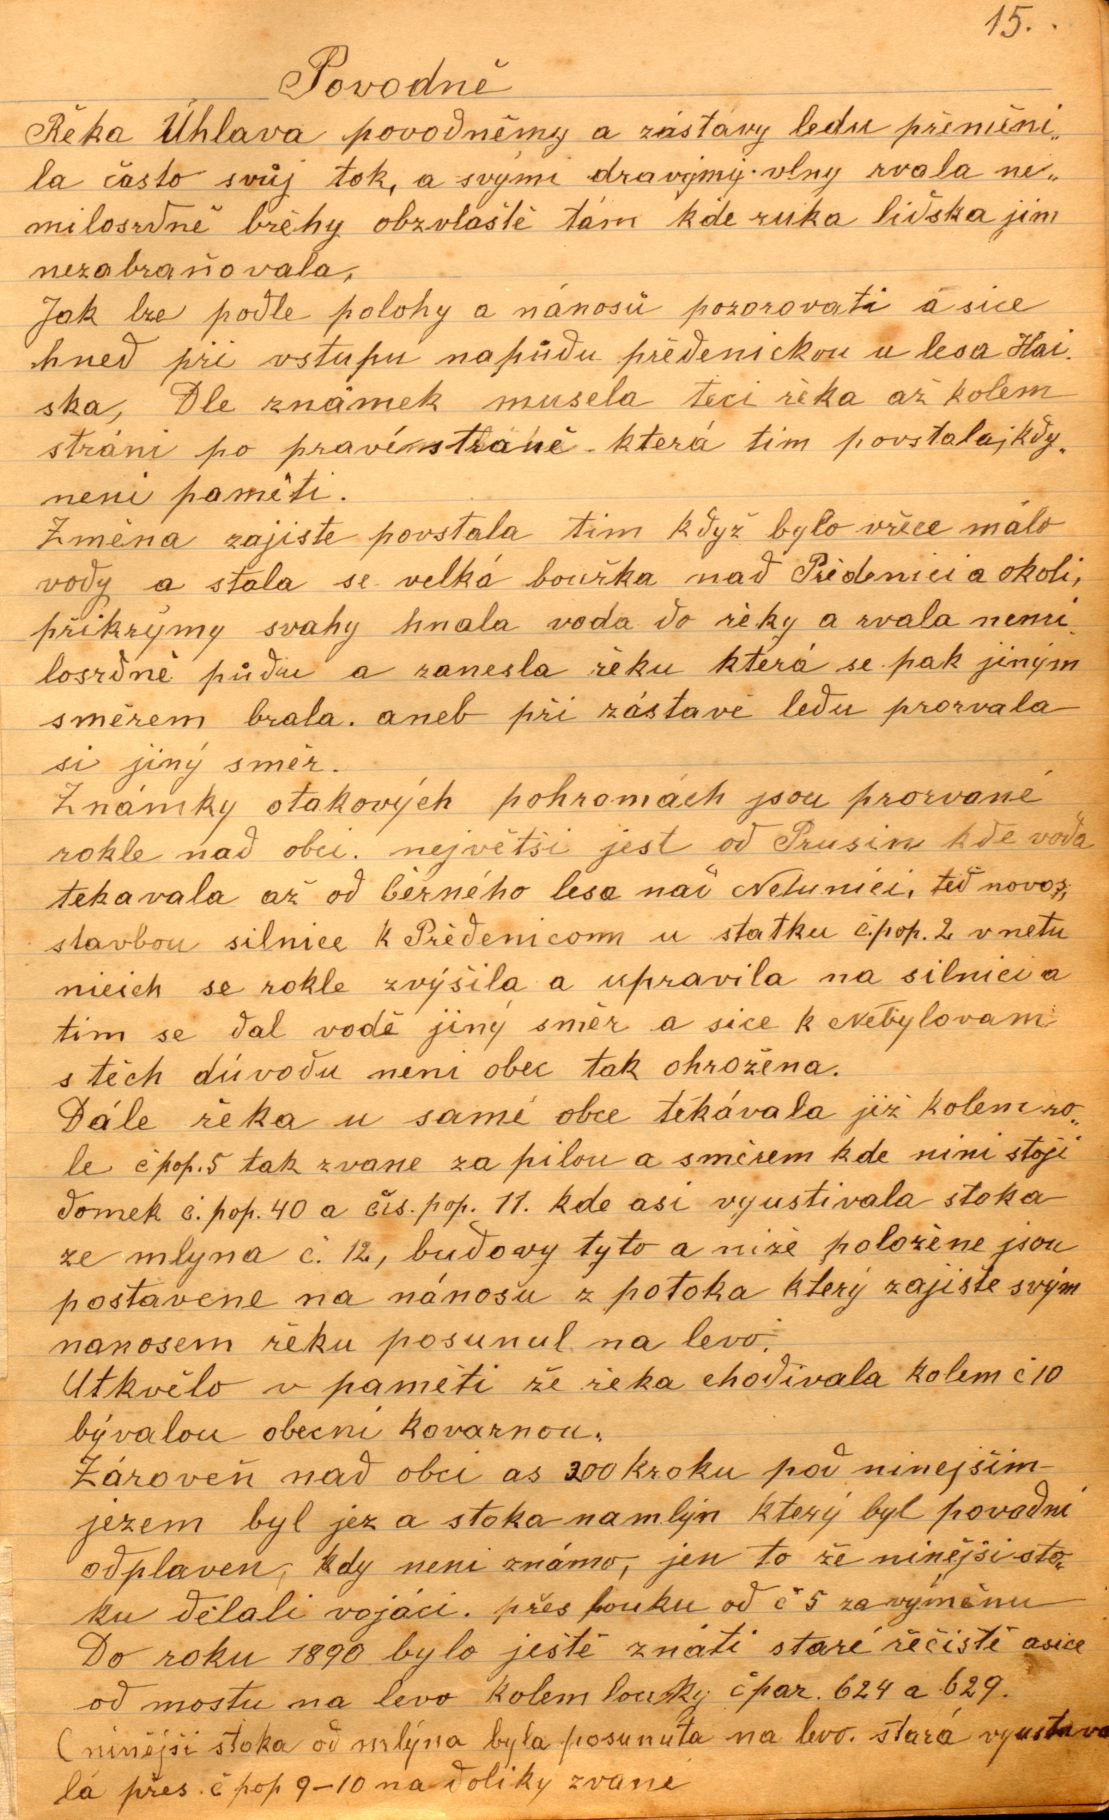 15.
Povodně
Řěka Úhlava povodněmy a zástavy ledu přeměni„
la často svůj tok, a svými dravýmy vlny rvala ne„
milosrdně břěhy obzvlaště tám kde ruka lidska jim
nezabraňovala,
Jak lze podle polohy a nánosů pozorovati á sice
hned při vstupu napůdu předenickou u lesa Hái
ska, Dle známek musela teci řěka až kolem
stráni po pravé straně která tim povstala, kdy
neni paměti.
Změna zajiste povstala tim kdyz bylo vřěce málo
vody a stala se velká bouřka nad Předenici a okoli,
přikrýmy svahy hnala voda do řěky a rvala nemi
losrdně půdu a zanesla řěku která se pak jiným
směrem brala. aneb při zástavě ledu prorvala
si jiný směr.
Známky otakových pohromách jsou prorvané
rokle nad obci. největši jest od Prusin kde voda
tekavala až od čérného lesa nad Netunici, ted novo„
stavbou silnice k Předenicom u statku č.pop. 2 v netu
nicich se rokle zvýšila a upravila na silnici a
tim se dal vodě jiný směr a sice k Nebylovam
s těch dúvodu neni obec tak ohrožena.
Dále řěka u samé obce tékávala již kolem ro„
le č pop. 5 tak zvane za pilou a směrem kde nini stoji
domek č. pop. 40 a čis. pop. 11. kde asi vyustivala stoka
ze mlyna č. 12, budovy tyto a niže položene jsou
postavene na nánosu z potoka který zajiste svým
nanosem řěku posunul na levo.
Utkvělo v paměti že řěka chodivala kolem č 10
bývalou obecni kovarnou.
Zároveň nad obci as 200 kroku pod ninejšim
jezem byl jez a stoka namlýn který byl povodni
odplaven, kdy neni známo, jen to že ninějši sto„
ku dělali vojáci. přes louku od č 5 za výměnu
Do roku 1890 bylo ještě znáti staré řěčistě asice
od mostu na levo kolem loučky čpar. 624 a 629.
(ninějši stoka od mlýna byla posunuta na levo. stará vyustava
lá přes č pop 9-10 na doliky zvane